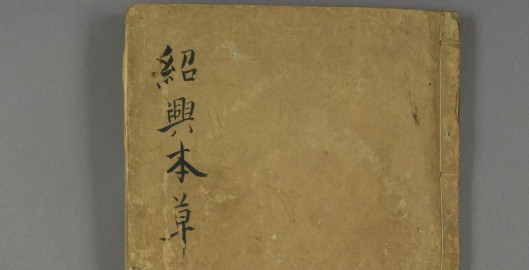 紹興本草